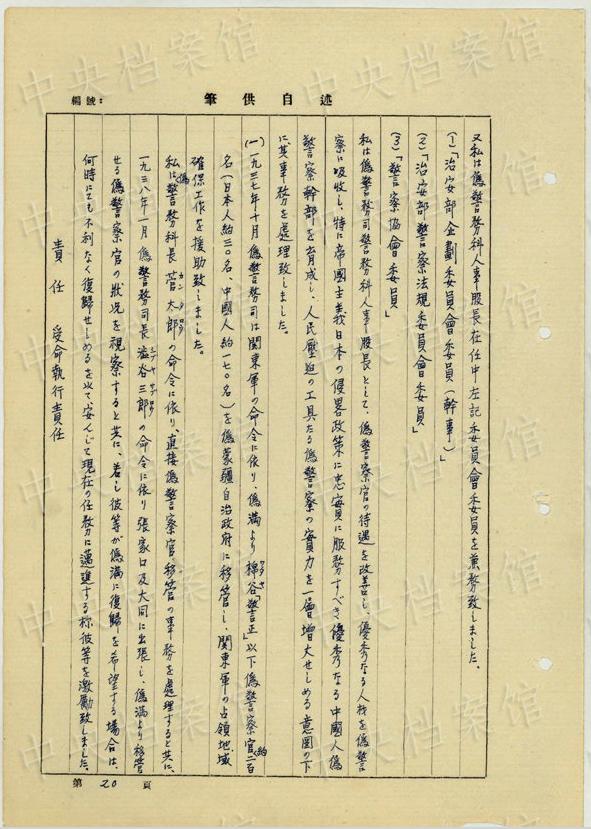 編號：
筆供自述
又私は偽警務科人事股長在任中左記委員會委員を兼務致しました。
(1)「治安部企劃委員會委員(幹事)」
(2)「治安部警察法規委員會委員」
(3)「警察協會委員」
私は偽警務司警務科人事股長として、偽警察官の待遇を改善し、優秀なる人材を偽警
察に吸收し、特に帝國主義日本の侵畧政策に忠實に服務すべき優秀なる中國人偽
警察幹部を育成し、人民壓迫の工具たる偽警察の實力を一層增大せしめる意圖の下
に、其事務を處理致しました。
(一)一九三七年十月偽警務司は関東軍の命令に依り、偽満より「棉谷警正」以下偽警察官約二百
名(日本人約三〇名、中國人約一七〇名)を偽蒙疆自治政府に移管し、関東軍の占領地域
確保工作を援助致しました。
私は偽警務科長菅太郎の命令に依り、直接偽警察官移管の事務を處理すると共に、
カン タロウ
一九三八年一月偽警務司長澁谷三郎の命令に依り張家口及大同に出張し、偽満より移管
シブヤ サブロウ
せる偽警察官の狀况を視察すると共に、若し彼等が偽満に復歸を希望する場合は、
何時にても不利なく復歸せしめるを以て、安んじて現在の任務に邁進する樣彼等を激勵致しました。
責任　受命執行責任
第 20 頁
中央档案馆